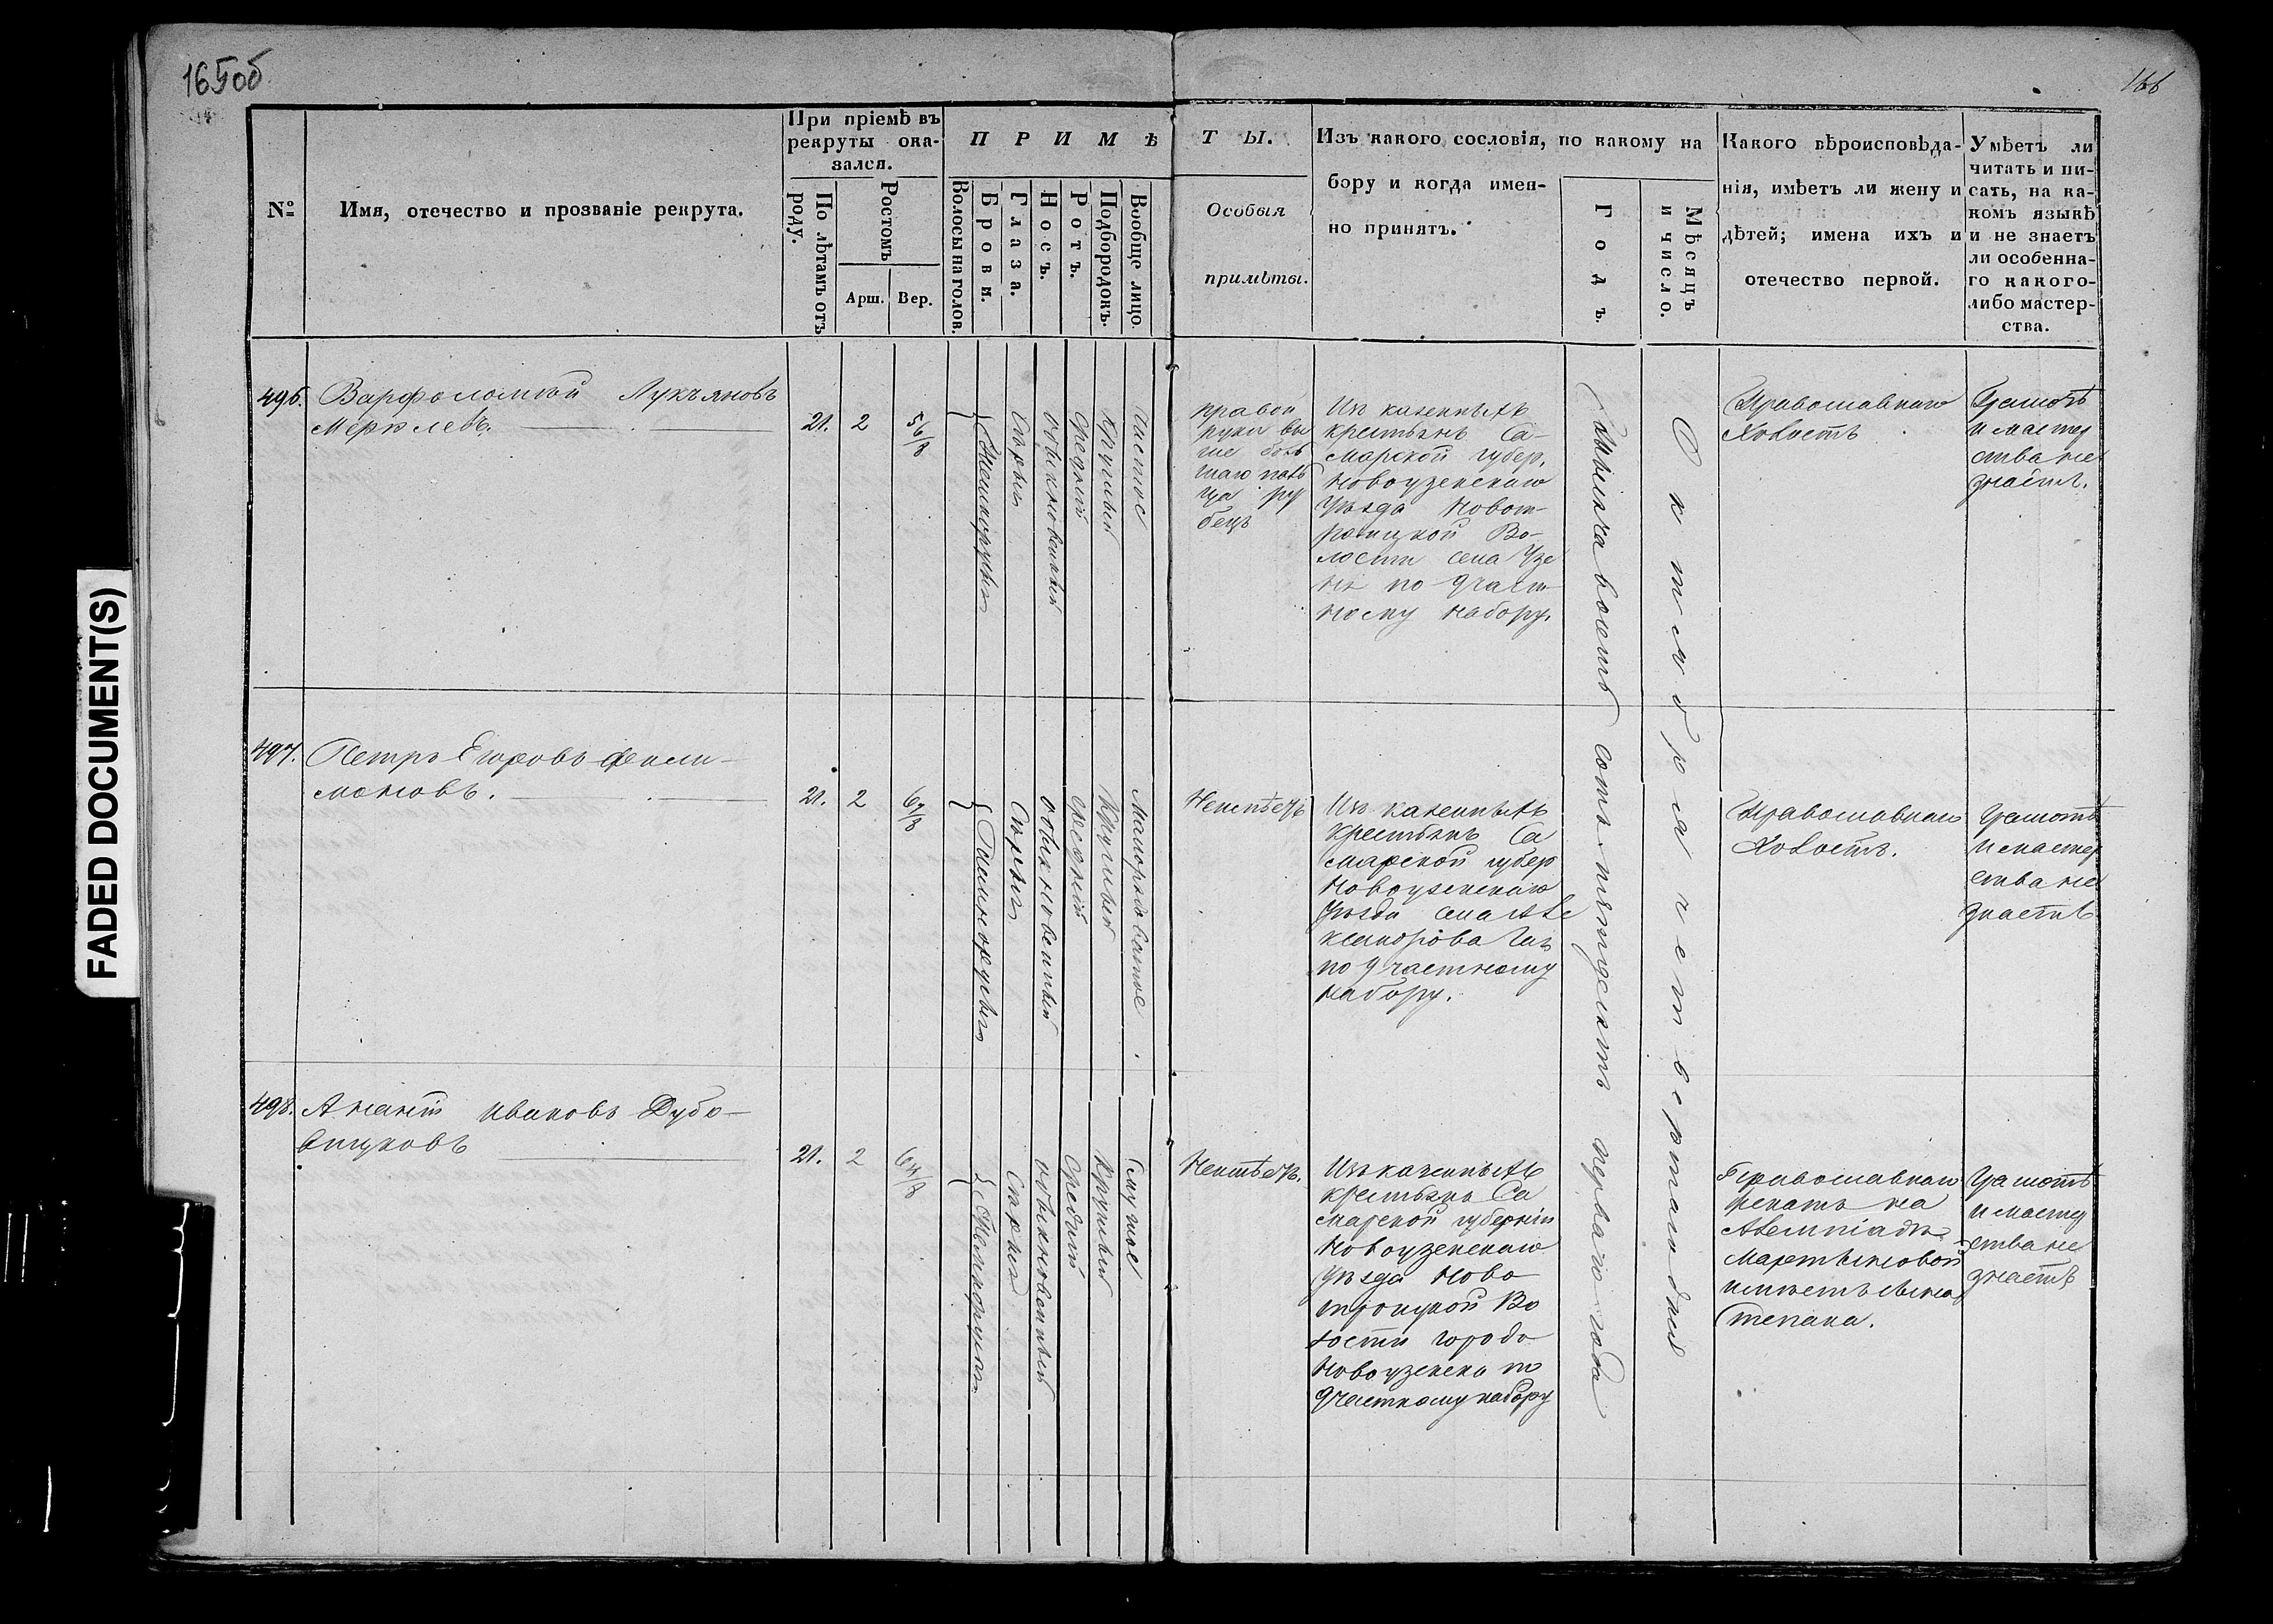 165об
166
FADED DOCUMENT(S)
№
Имя, отечество и прозваніе рекрута.
При пріемѣ въ
рекруты ока-
зался.
По лѣтамъ отъ
роду.
Ростомъ
Арш.
Вер.
ПРИМѢ
Волосы на голов.
Брови.
Глаза.
Носъ.
Ротъ.
Подбородокъ.
Вообще лицо.
ТЫ.
Особыя
примѣты.
Изъ какого сословія, по какому на
бору и когда имен-
но принятъ.
Годъ.
Мѣсяцъ
и число.
Какого вѣроисповѣда-
нія, имѣетъ ли жену и
дѣтей; имена ихъ и
отечество первой.
Умѣетъ ли
читать и пи-
сать, на ка-
комъ языкѣ
и не знаетъ
ли особенна-
го какого-
либо мастер-
ства.
496.
Варфоломѣй Лукъяновъ
Меркулевъ.
21.
2
5 6/8
Сѣрыя
обыкновенный
средній
круглый
чистое
правой
руки вы
ше боль
шаго паль
ца ру
бецъ
Изъ казенныхъ
крестьянъ Са-
марской губер.
Новоузенскаго
Уѣзда Новот-
роицкой Во-
лости села Узе
ня по Участ
ному набору.
Тысяча восемь сотъ пятдесятъ перваго года
Октября четвертаго дня
Православнаго
Холостъ
Грамотѣ
и мастер
ства не
знаетъ.
497.
Петръ Егоровъ Фили-
моновъ.
21.
2
6 7/8
Темнорусыя
Сѣрыя
обыкновенный
средній
Круглый
Малорябоватое.
Неимѣетъ
Изъ казенныхъ
Крестьянъ Са
марской губер
Новоузенскаго
Уѣзда села Але
ксандрова Гая
по Участному
набору.
Православнаго
Холостъ.
Грамотѣ
и мастер
ства не
знаетъ
498.
Ананій Ивановъ Дубо-
вицковъ
21.
2
6 4/8
Сѣрыя
обыкновенный
Средній
Круглый
Смуглое
Неимѣетъ.
Изъ казенныхъ
крестьянъ Са
марской губерніи
Новоузенскаго
Уѣзда Ново
троицкой Во
лости города
Новоузенска по
Участному набору
Православнаго
женатъ на
Алемпіадѣ
Мартыновой
имѣетъ сына
Степана.
Грамотѣ
и мастер
ства не
знаетъ